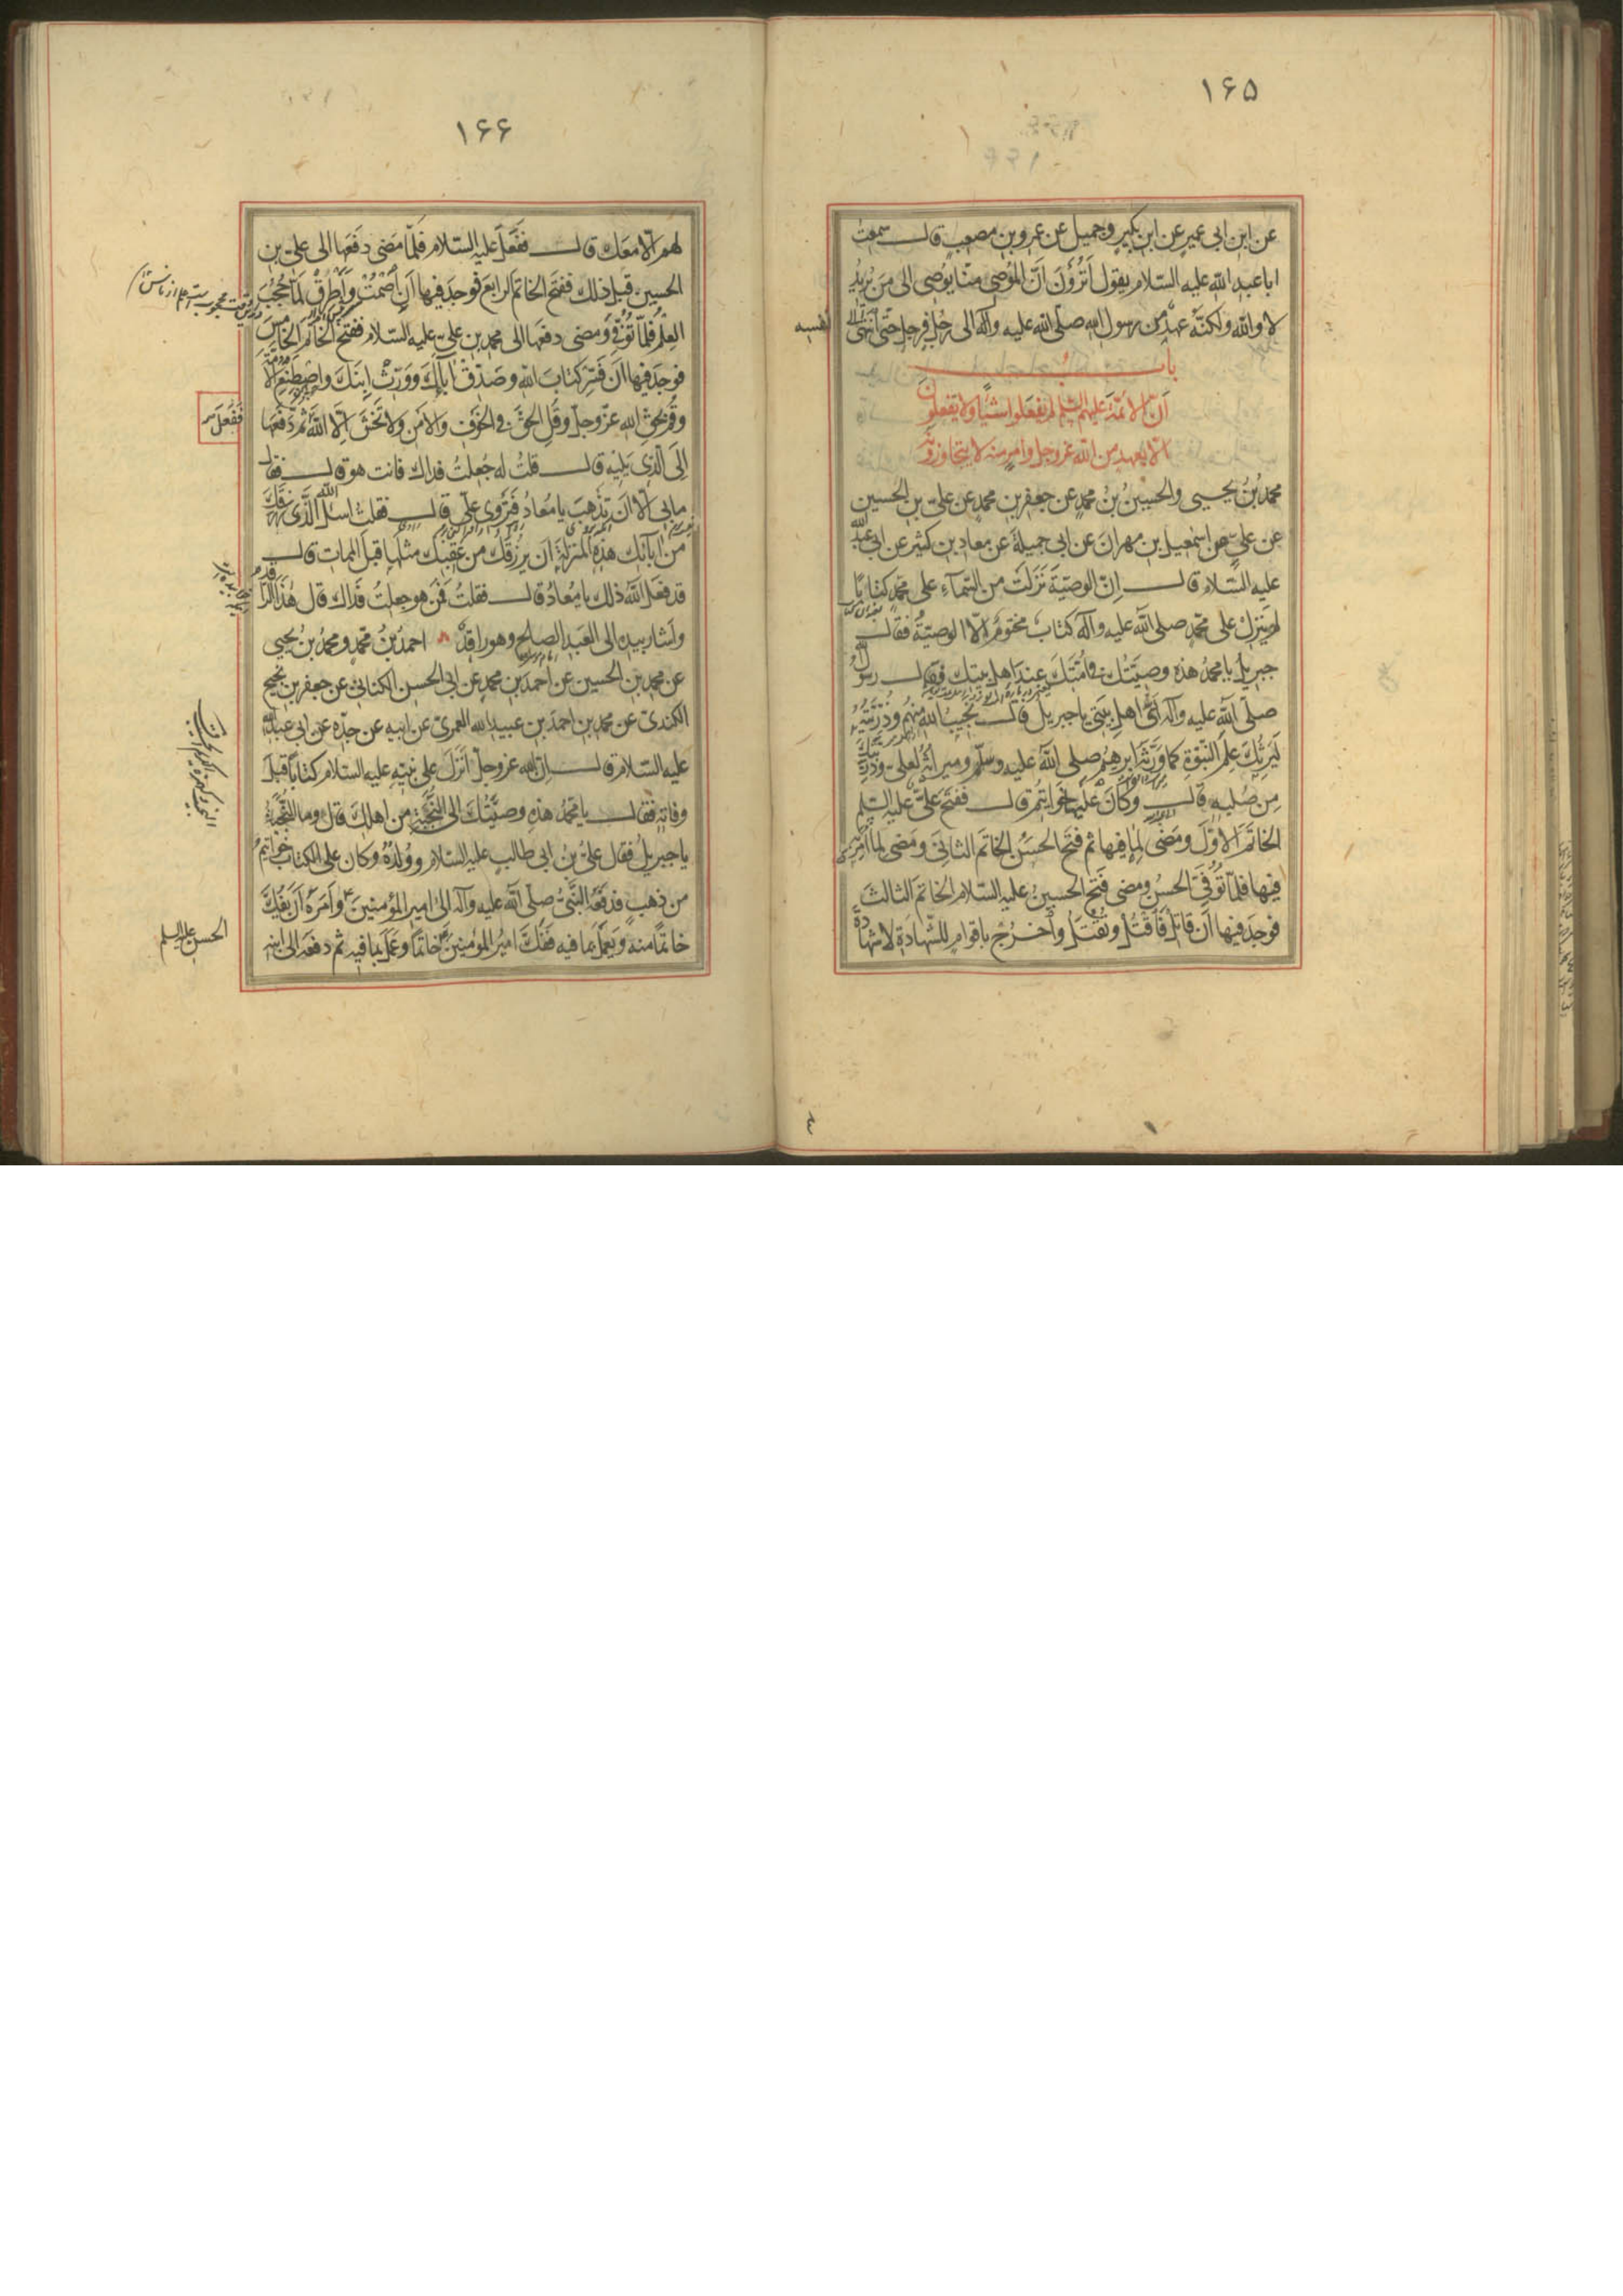 ۱۶۵
عن ابن ابى عمير عن ابن بكير وجميل عن عمرو بن مصعب قال سمعت
اباعبد الله عليه السلام يقول أترون أنّ الموصى منّا يوصى الى من يريد
لا والله ولكنّه عهد من رسول الله صلى الله عليه وآله الى رجل فرجل حتى انتهى الى
نفسه
باب
أنّ الائمّة عليهم السلم لم يفعلوا شيئًا ولا يفعلون
الّا بعهد من الله عزوجل وامر منه لا يتجاوزونه
محمد بن يحيى والحسين بن محمد عن جعفر بن محمد عن على بن الحسين
عن على بن اسمعيل بن مهران عن ابى جميلة عن معاذ بن كثير عن ابى عبد الله
عليه السلام قال إنّ الوصيّة نزلت من السماء على محمد كتابًا
لم ينزل على محمد صلى الله عليه وآله كتاب مختوم الّا الوصيّة فقال
جبريل يا محمد هذه وصيّتك فى امّتك عند اهل بيتك فقال رسول الله
صلى الله عليه وآله اىّ اهل بيتى يا جبريل قال نجيب الله منهم وذرّيّته
ليرثك علم النبوّة كما ورّثه ابرهيم صلى الله عليه وسلم وميراثه لعلىّ وذريّتك
من صلبه قال وكان عليها خواتيم قال ففتح علىّ عليه السلم
الخاتم الاوّل ومضى لما فيها ثم فتح الحسن الخاتم الثانى ومضى لما أمر به
فيها فلما توفّى الحسن ومضى فتح الحسين عليه السلام الخاتم الثالث
فوجد فيها أن قاتل فاقتل وتقتل واخرج باقوام للشّهادة لا شهادة
۱۶۶
لهم الّا معك قال ففعل عليه السلام فلمّا مضى دفعها الى على بن
الحسين قبل ذلك ففتح الخاتم الرابع فوجد فيها أن اصمت وأطرق لما حجب
العلم فلمّا توفّى ومضى دفعها الى محمد بن على عليه السلام ففتح الخاتم الخامس
فوجد فيها أن فسّر كتاب الله وصدّق اباك وورّث ابنك واصطنع الامّة
وقم بحق الله عزّ وجلّ وقل الحقّ فى الخوف والامن ولا تخش الّا الله ثم دفعها
ففعل
الى الّذى يليه قال قلت له جعلت فداك فانت هو قال فقال
ما بى الّا أن تذهب يا معاذ فتروى علىّ قال فقلت اسأل الله الّذى رزقك
من آبائك هذه المنزلة أن يرزقك من عقبك مثلها قبل الممات قال
قد فعل الله ذلك يا معاذ قال فقلت فمن هو جعلت فداك قال هذا الراقد
واشار بيده الى العبد الصالح وهو راقد احمد بن محمد ومحمد بن يحيى
عن محمد بن الحسين عن احمد بن محمد عن ابى الحسن الكنانى عن جعفر بن نجيح
الكندى عن محمد بن احمد بن عبيد الله العمرى عن ابيه عن جدّه عن ابى عبد الله
عليه السلام قال إنّ الله عزوجل انزل على نبيّه عليه السلام كتابًا قبل
وفاته فقال يا محمد هذه وصيّتك الى النّجبة من اهلك قال وما النّجبة
يا جبريل فقال علىّ بن ابى طالب عليه السلام وولده وكان على الكتاب خواتيم
من ذهب فدفعه النبىّ صلى الله عليه وآله الى امير المؤمنين وأمره أن يفكّ
خاتمًا منه ويعمل بما فيه ففكّ امير المؤمنين خاتمًا وعمل بما فيه ثم دفعه الى ابنه
الحسن عليه السلم